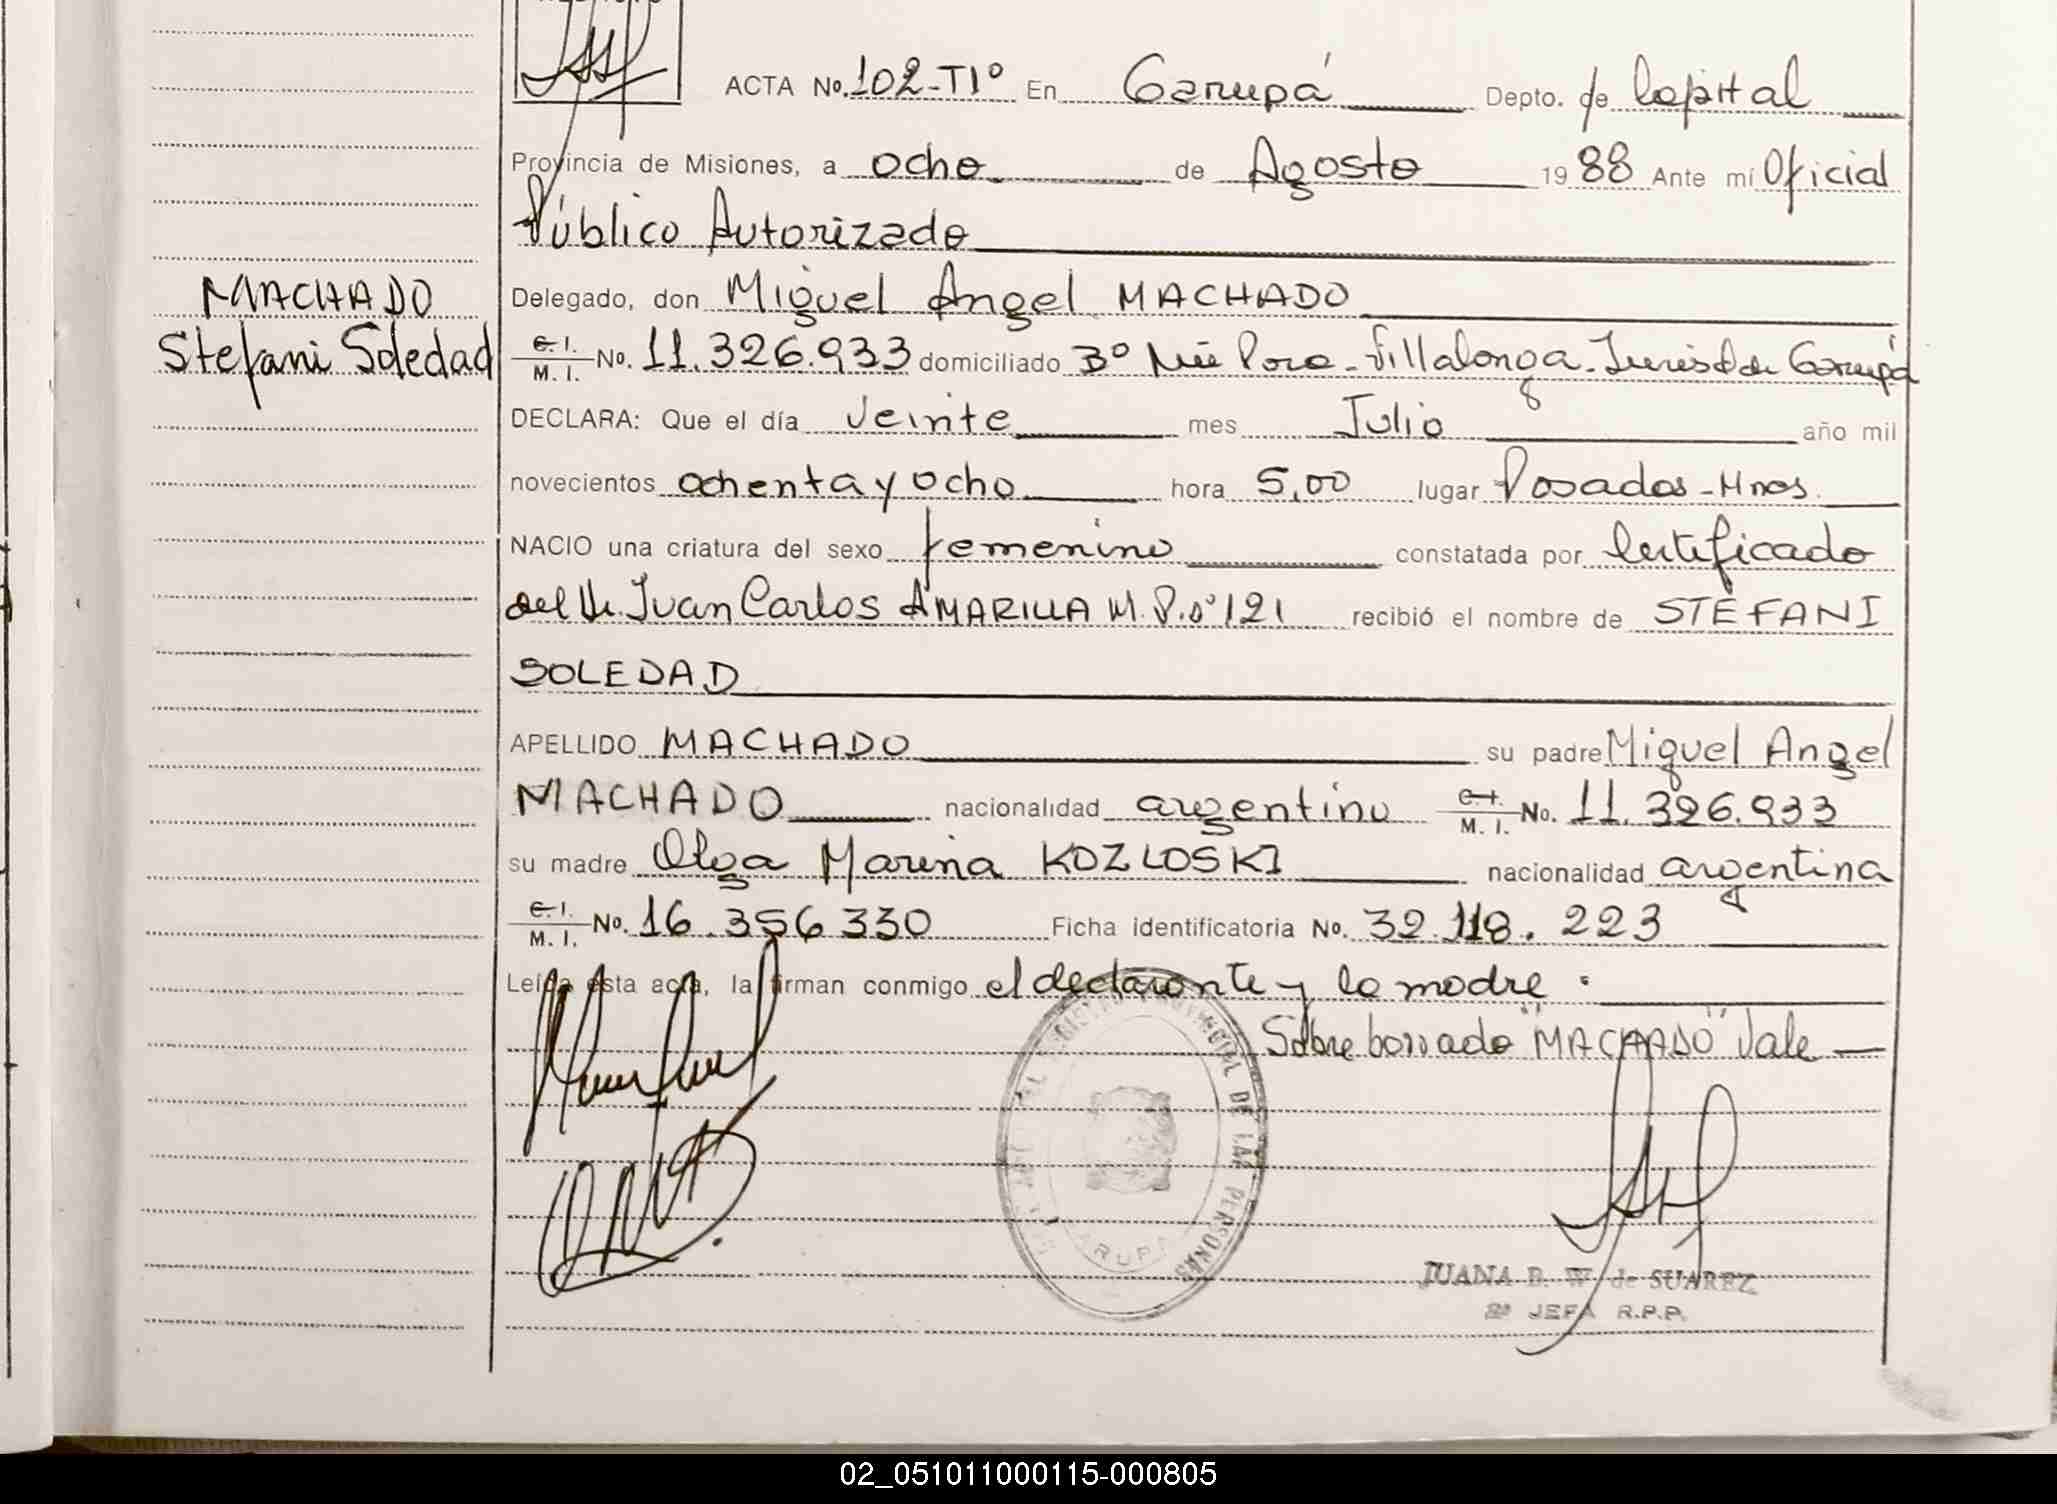 ACTA No. 102-T1º En Garupá Depto. de Capital
Provincia de Misiones, a ocho de Agosto 1988 Ante mí Oficial
Público Autorizado
MACHADO
Stefani Soledad
Delegado, don Miguel Angel MACHADO
C. I. M. I. No. 11.326.933 domiciliado Bº Ñu Pora - Villalonga - Jurisd. de Garupá
DECLARA: Que el día Veinte mes Julio año mil
novecientos ochenta y ocho hora 5,00 lugar Posadas - Mnes.
NACIO una criatura del sexo femenino constatada por Certificado
del Dr. Juan Carlos AMARILLA M. P. nº 121 recibió el nombre de STEFANI
SOLEDAD
APELLIDO MACHADO su padre Miguel Angel
MACHADO nacionalidad argentino C. I. M. I. No. 11.326.933
su madre Olga Marina KOZLOSKI nacionalidad argentina
C. I. M. I. No. 16.356.330 Ficha identificatoria No. 32.118.223
Leída esta acta, la firman conmigo el declarante y la madre.
Sobre borrado "MACHADO" Vale
PROVINCIAL DE LAS PERSONAS
GARUPA
JUANA B. W. de SUAREZ
2ª JEFA R.P.P.
02_051011000115-000805